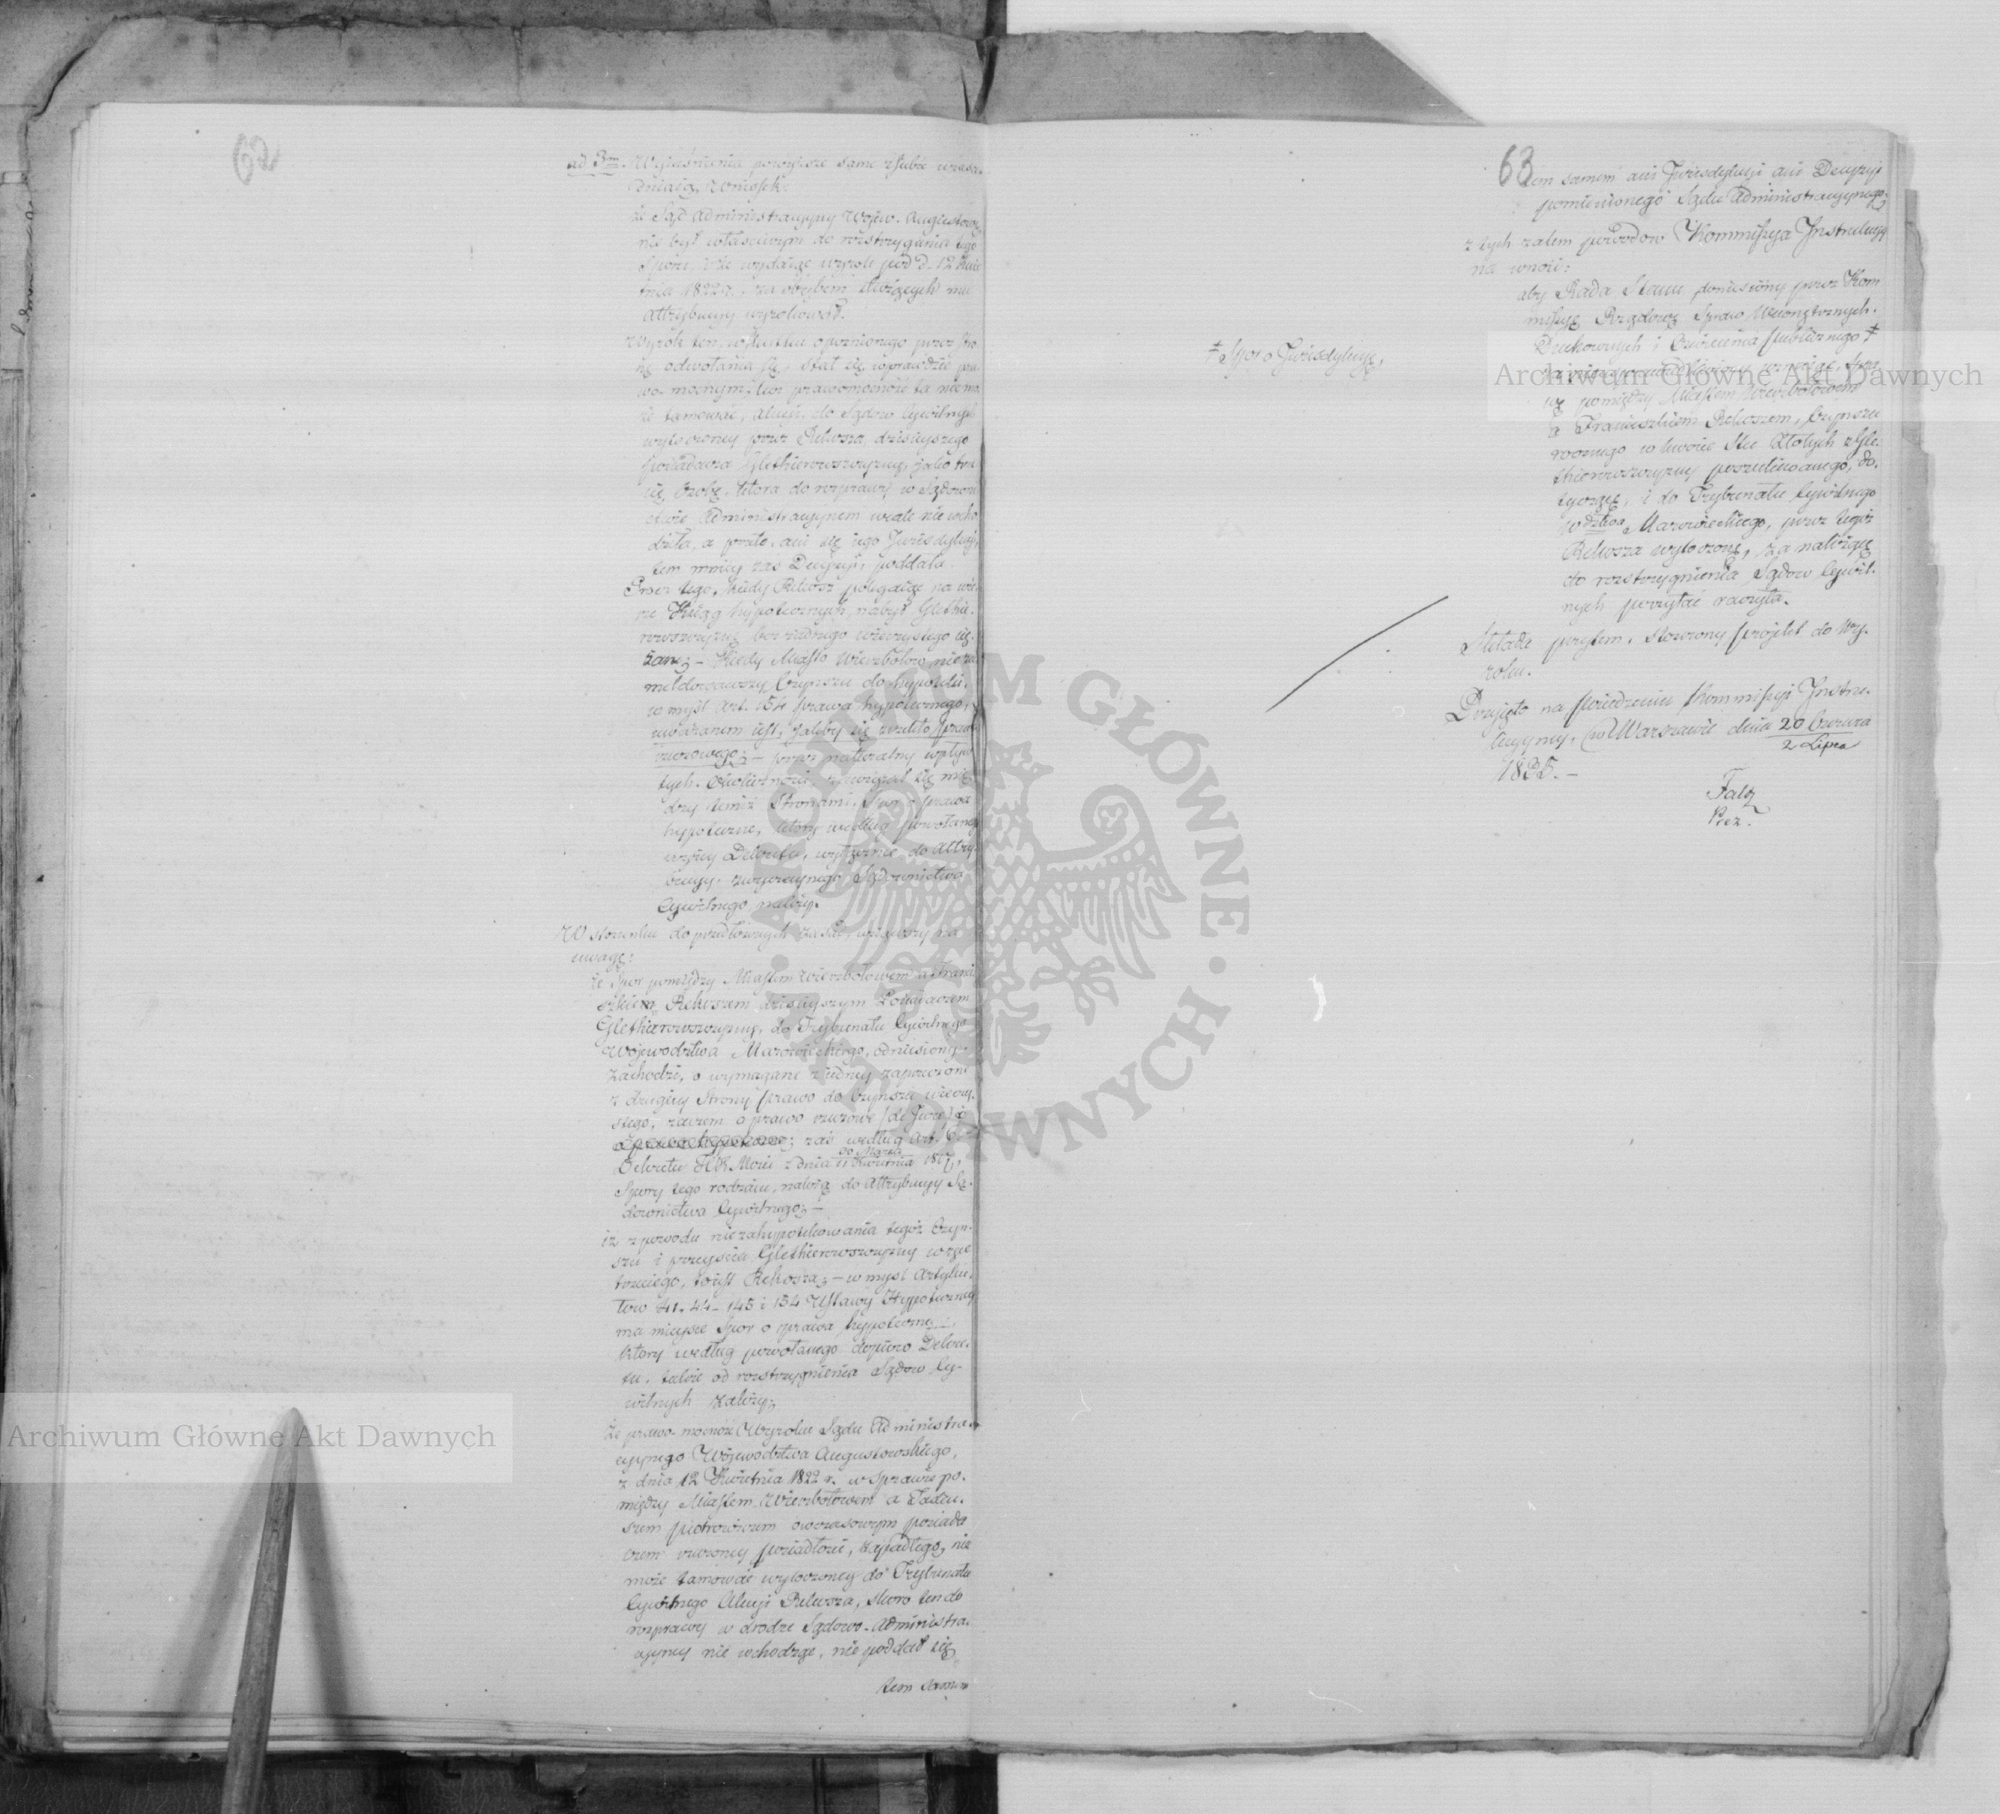 62
ad 3m Wyjaśnienia powyższe same z siebie uzasa-
dniają wniosek:
że Sąd Administracyjny Wojew. Augustow.
nie był właściwym do rozstrzygania tego
Sporu, i że wydając wyrok pod d. 12 Kwie
tnia 1822 r. za obrębem służących mu
Attrybucyj wyrokował.
Wyrok ten, wskutku opoznionego przez stro
nę odwołania się, stał się wprawdzie pra
wo-mocnym, lecz prawomocność ta nie mo
że tamować, Akcyi, do Sądow Cywilnych
wytoczoney przez Rekosza dzisieyszego
posiadacza Glethierowszczyzny, jako trze
cią Osobę, ktora do rozprawy w Sądowni
ctwie Administracyjnem wcale nie wcho
dziła, a przeto, ani się jego Jurisdykcyi,
tem mniey zas Decyzyi, poddała.
Procz tego, kiedy Rekosz polegając na wie
rze Xiąg hypotecznych, nabył Glethie-
rowszczyznę bez żadnego wieczystego cię-
żaru; – Kiedy Miasto Wierzbołow, nie za
meldowawszy Czynszu do hypoteki,
w myśl Art. 154 prawa hypotecznego,
uważanem jest, jakby się zrzekło prawa
rzeczowego; – przez naturalny wpływ
tych okoliczności, zawiązał się mię
dzy temiż Stronami, Spor o prawa
hypoteczne, ktory według powołanego
wyżey Dekretu, wyłącznie do Attry-
bucyi zwyczaynego Sądownictwa
Cywilnego należy.
W stosunku do przełożonych zasad, wziąwszy na
uwagę:
że Spor pomiędzy Miastem Wierzbołowem a Franci
szkiem Rekoszem dzisieyszym Posiadaczem
Glethierowszczyzny, do Trybunału Cywilnego
Wojewodztwa Mazowieckiego, odniesiony
zachodzi, o wymagane z jedney zaprzeczone
z drugiey Strony prawo do Czynszu wieczy-
stego, zaczem o prawo rzeczowe (de Jure)
zaś według Art. 6.
Dekretu JKKMości z dnia 30 Marca / 11 Kwietnia 1817,
Spory tego rodzaiu, należą do Attrybucyy Są-
downictwa Cywilnego; –
iż z powodu niezahypotekowania tegoż Czyn-
szu i przeyścia Glethierowszczyzny w ręce
trzeciego, to iest Rekosza; – w myśl Artyku-
łow 41. 44 – 145 i 154 Ustawy Hypoteczney
ma mieysce Spor o prawa hypoteczne,
Ktory według powołanego dopiero Dekre-
tu, także od rozstrzygnienia Sądow Cy-
wilnych zależy;
że prawo-mocność Wyroku Sądu Administra-
cyjnego Wojewodztwa Augustowskiego,
z dnia 12 Kwietnia 1822 r. w sprawie po-
między Miastem Wierzbołowem a Tadeu-
szem Piotrowiczem owczasowym posiada
czem rzeczoney posiadłości, zapadłego, nie
może tamować wytoczoney do Trybunału
Cywilnego Akcyi Rekosza, skoro ten do
rozprawy w drodze Sądowo-Administra-
cyjney nie wchodząc, nie poddał się
tem samem
63
tem samem ani Jurisdykcyi ani Decyzyi
pomienionego Sądu Administracyjnego.
z tych zatem powodow Kommissya Instrukcyj
na wnosi:
aby Rada Stanu doniesiony przez Kom
missyę Rządową Spraw Wewnętrznych
Duchownych i Oświecenia Publicznego ‡
‡ Spor o Jurisdykcyę,
wę pomiędzy Miastem Wierzbołowem
a Franciszkiem Rekoszem, Czynszu
rocznego w kwocie Stu Złotych z Gle-
thierowszczyzny poszukiwanego, do-
tyczącą, i do Trybunału Cywilnego
Wdztwa Mazowieckiego, przez tegoż
Rekosza wytoczoną, za należącą
do rozstrzygnienia Sądow Cywil-
nych poczytać raczyła.
Składa przytem, stosowny projekt do Wy-
roku.
Przyjęto na posiedzeniu Kommissyi Instru-
kcyjney, w Warszawie dnia 20 Czerwca / 2 Lipca
1835. –
Falz
Prez.
Archiwum Główne Akt Dawnych
Archiwum Główne Akt Dawnych
ARCHIWUM GŁÓWNE · AKT DAWNYCH ·